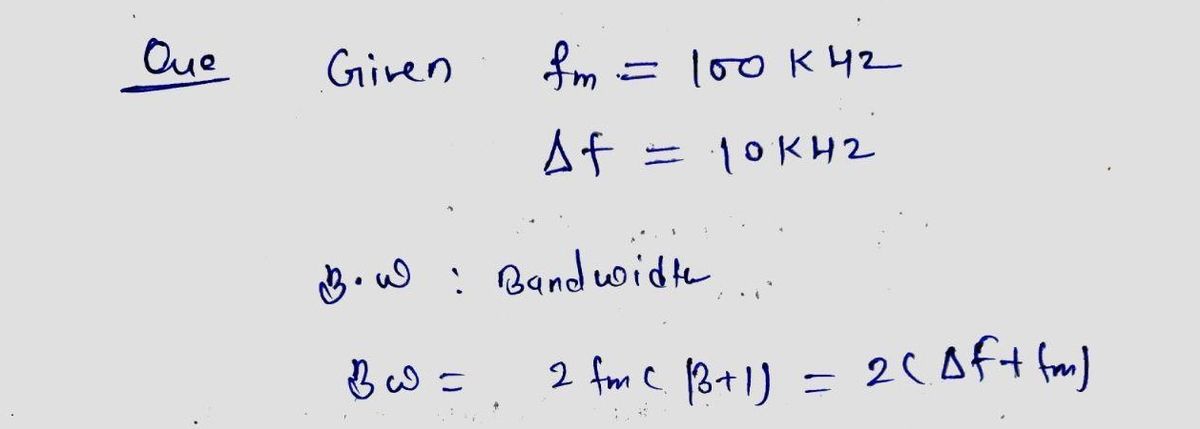 Que Given fm = 100 KHz
Δf = 10KHz
B.W : Bandwidth
BW = 2 fm (β+1) = 2(Δf+fm)